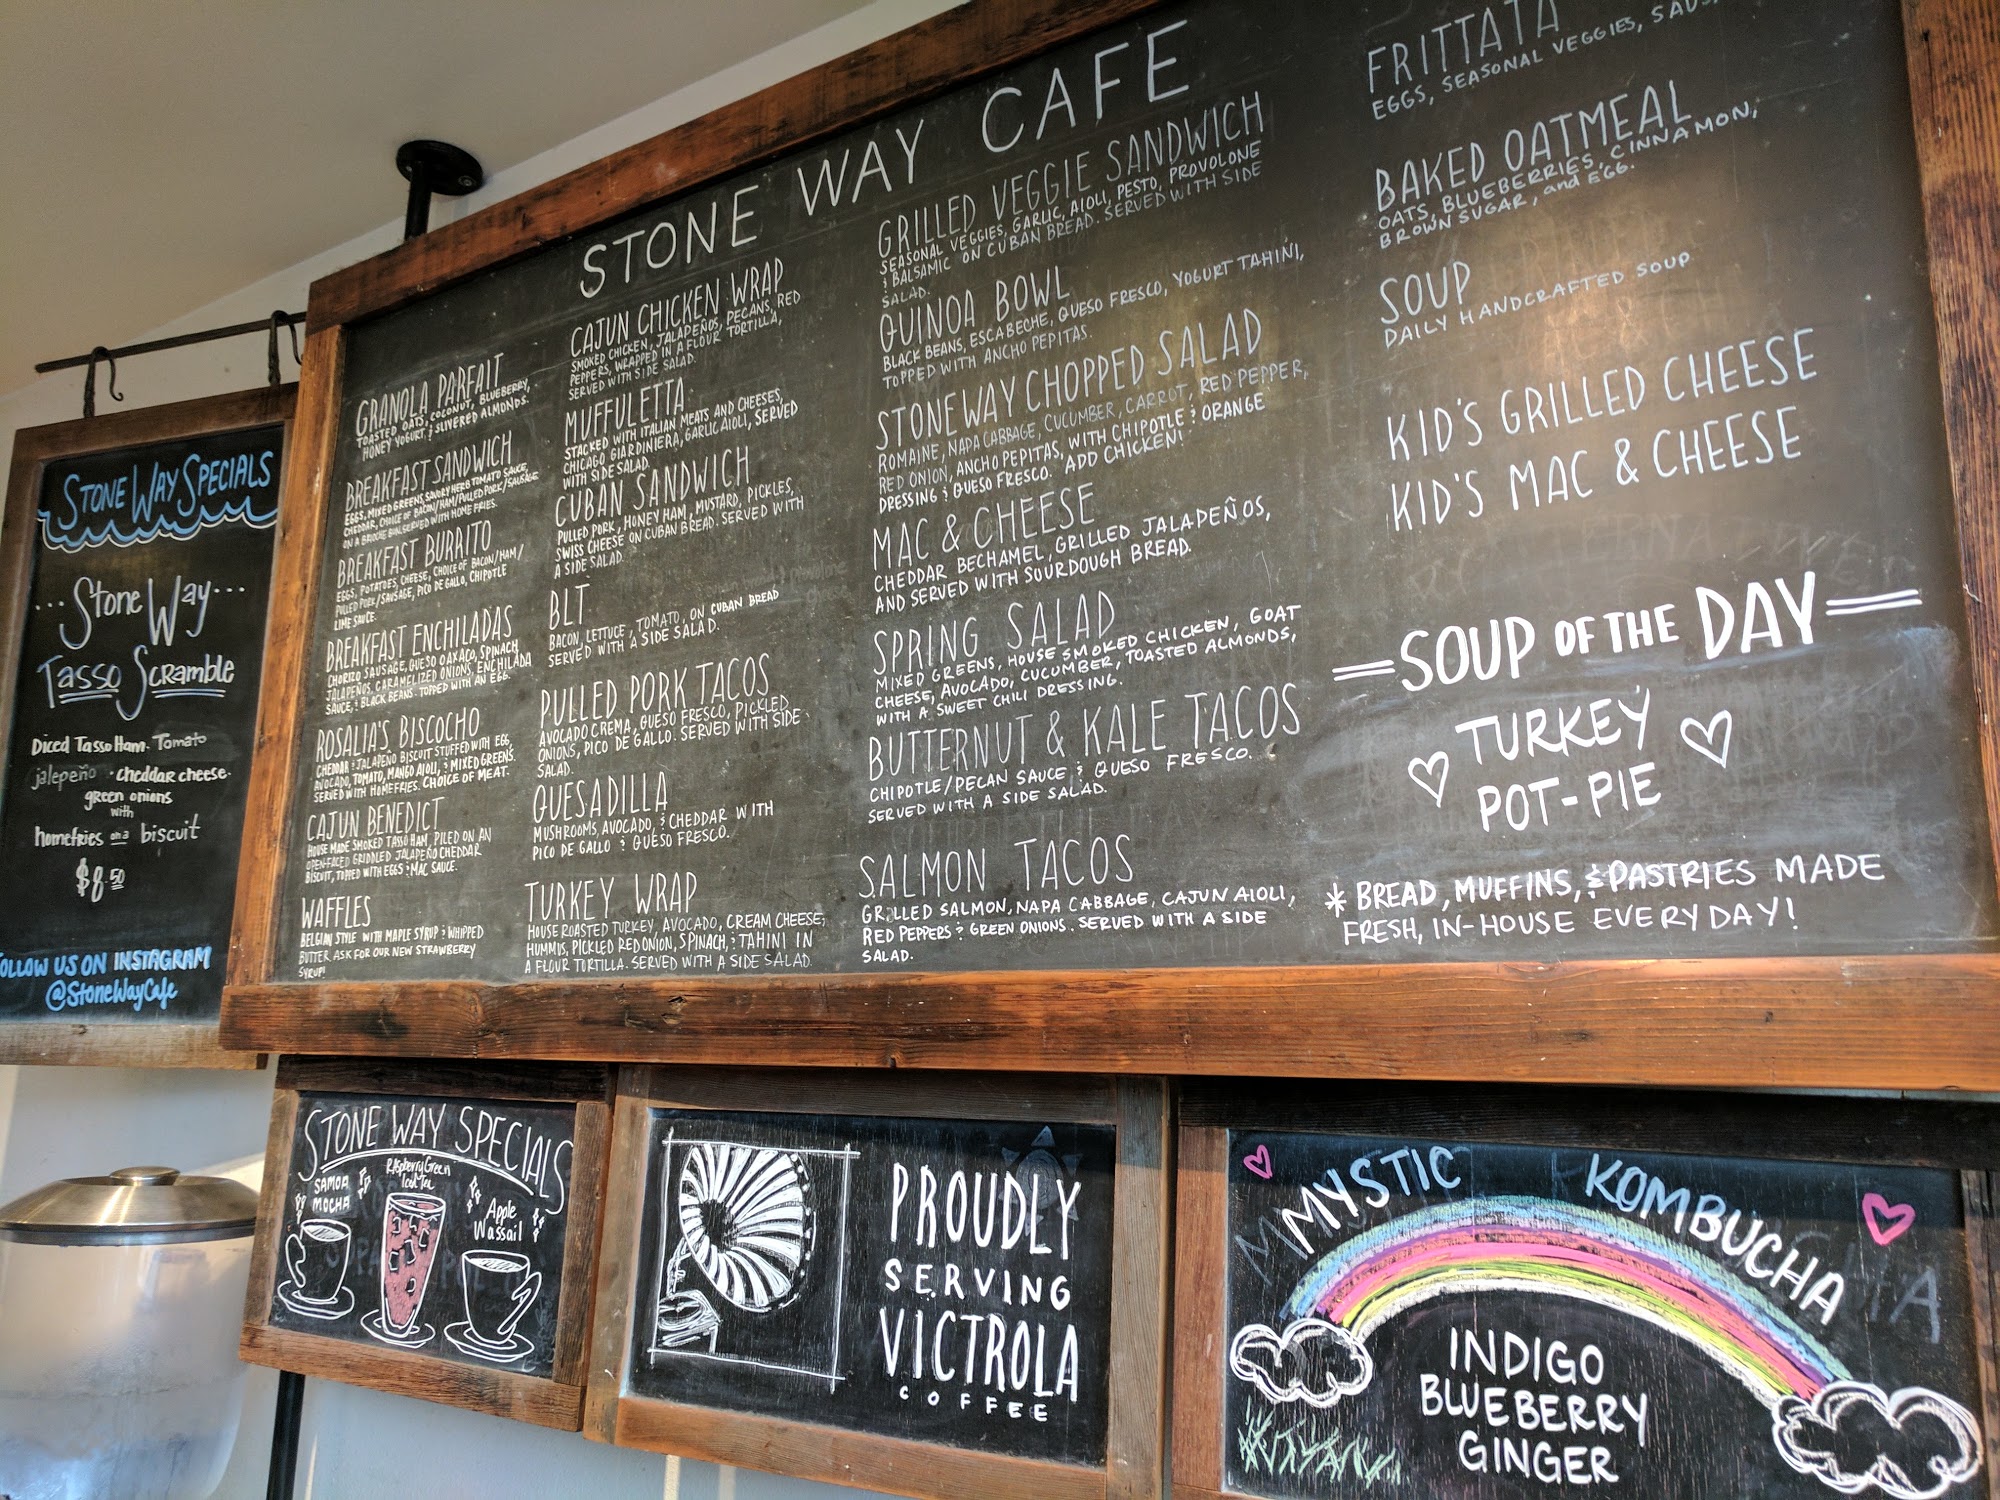 STONE WAY SPECIALS
...Stone Way...
Tasso Scramble
Diced Tasso Ham. Tomato
jalepeño • cheddar cheese.
green onions
with
homefries on a biscuit
$8.50
FOLLOW US ON INSTAGRAM
@StoneWayCafe
STONE WAY CAFE
GRANOLA PARFAIT
TOASTED OATS, COCONUT, BLUEBERRY,
HONEY YOGURT, & SLIVERED ALMONDS.
BREAKFAST SANDWICH
EGGS, MIXED GREENS, SAVORY HERB TOMATO SAUCE,
CHEDDAR, CHOICE OF BACON/HAM/PULLED PORK/SAUSAGE
ON A BRIOCHE BUN. SERVED WITH HOME FRIES.
BREAKFAST BURRITO
EGGS, POTATOES, CHEESE, CHOICE OF BACON/HAM/
PULLED PORK/SAUSAGE, PICO DE GALLO, CHIPOTLE
LIME SAUCE.
BREAKFAST ENCHILADAS
CHORIZO SAUSAGE, QUESO OAXACO, SPINACH
JALAPEÑOS, CARAMELIZED ONIONS, ENCHILADA
SAUCE, & BLACK BEANS. TOPPED WITH AN EGG.
ROSALIA'S BISCOCHO
CHEDDAR & JALAPEÑO BISCUIT STUFFED WITH EGG,
AVOCADO, TOMATO, MANGO AIOLI, & MIXED GREENS.
SERVED WITH HOMEFRIES. CHOICE OF MEAT.
CAJUN BENEDICT
HOUSE MADE SMOKED TASSO HAM, PILED ON AN
OPEN-FACED GRIDDLED JALAPEÑO CHEDDAR
BISCUIT, TOPPED WITH EGGS & MAC SAUCE.
WAFFLES
BELGIAN STYLE WITH MAPLE SYRUP & WHIPPED
BUTTER. ASK FOR OUR NEW STRAWBERRY
SYRUP!
CAJUN CHICKEN WRAP
SMOKED CHICKEN, JALAPEÑOS, PECANS, RED
PEPPERS, WRAPPED IN A FLOUR TORTILLA,
SERVED WITH SIDE SALAD.
MUFFULETTA
STACKED WITH ITALIAN MEATS AND CHEESES,
CHICAGO GIARDINIERA, GARLIC AIOLI, SERVED
WITH SIDE SALAD.
CUBAN SANDWICH
PULLED PORK, HONEY HAM, MUSTARD, PICKLES,
SWISS CHEESE ON CUBAN BREAD. SERVED WITH
A SIDE SALAD.
BLT
BACON, LETTUCE, TOMATO, ON CUBAN BREAD
SERVED WITH A SIDE SALAD.
PULLED PORK TACOS
AVOCADO CREMA, QUESO FRESCO, PICKLED
ONIONS, PICO DE GALLO. SERVED WITH SIDE
SALAD.
QUESADILLA
MUSHROOMS, AVOCADO, & CHEDDAR WITH
PICO DE GALLO & QUESO FRESCO.
TURKEY WRAP
HOUSE ROASTED TURKEY, AVOCADO, CREAM CHEESE,
HUMMUS, PICKLED RED ONION, SPINACH, & TAHINI IN
A FLOUR TORTILLA. SERVED WITH A SIDE SALAD.
GRILLED VEGGIE SANDWICH
SEASONAL VEGGIES, GARLIC, AIOLI, PESTO, PROVOLONE
& BALSAMIC ON CUBAN BREAD. SERVED WITH SIDE
SALAD.
QUINOA BOWL
BLACK BEANS, ESCABECHE, QUESO FRESCO, YOGURT TAHINI,
TOPPED WITH ANCHO PEPITAS.
STONEWAY CHOPPED SALAD
ROMAINE, NAPA CABBAGE, CUCUMBER, CARROT, RED PEPPER,
RED ONION, ANCHO PEPITAS, WITH CHIPOTLE & ORANGE
DRESSING & QUESO FRESCO. *ADD CHICKEN!*
MAC & CHEESE
CHEDDAR BECHAMEL, GRILLED JALAPEÑOS,
AND SERVED WITH SOURDOUGH BREAD.
SPRING SALAD
MIXED GREENS, HOUSE SMOKED CHICKEN, GOAT
CHEESE, AVOCADO, CUCUMBER, TOASTED ALMONDS,
WITH A SWEET CHILI DRESSING.
BUTTERNUT & KALE TACOS
CHIPOTLE/PECAN SAUCE & QUESO FRESCO.
SERVED WITH A SIDE SALAD.
SALMON TACOS
GRILLED SALMON, NAPA CABBAGE, CAJUN AIOLI,
RED PEPPERS & GREEN ONIONS. SERVED WITH A SIDE
SALAD.
FRITTATA
EGGS, SEASONAL VEGGIES,
BAKED OATMEAL
OATS, BLUEBERRIES, CINNAMON,
BROWN SUGAR, and EGG.
SOUP
DAILY HANDCRAFTED SOUP
KID'S GRILLED CHEESE
KID'S MAC & CHEESE
SOUP OF THE DAY
TURKEY
POT-PIE
* BREAD, MUFFINS, & PASTRIES MADE
FRESH, IN-HOUSE EVERYDAY!
STONE WAY SPECIALS
SAMOA
MOCHA
Raspberry Green
Iced Tea
Apple
Wassail
PROUDLY
SERVING
VICTROLA
COFFEE
MYSTIC KOMBUCHA
INDIGO
BLUEBERRY
GINGER